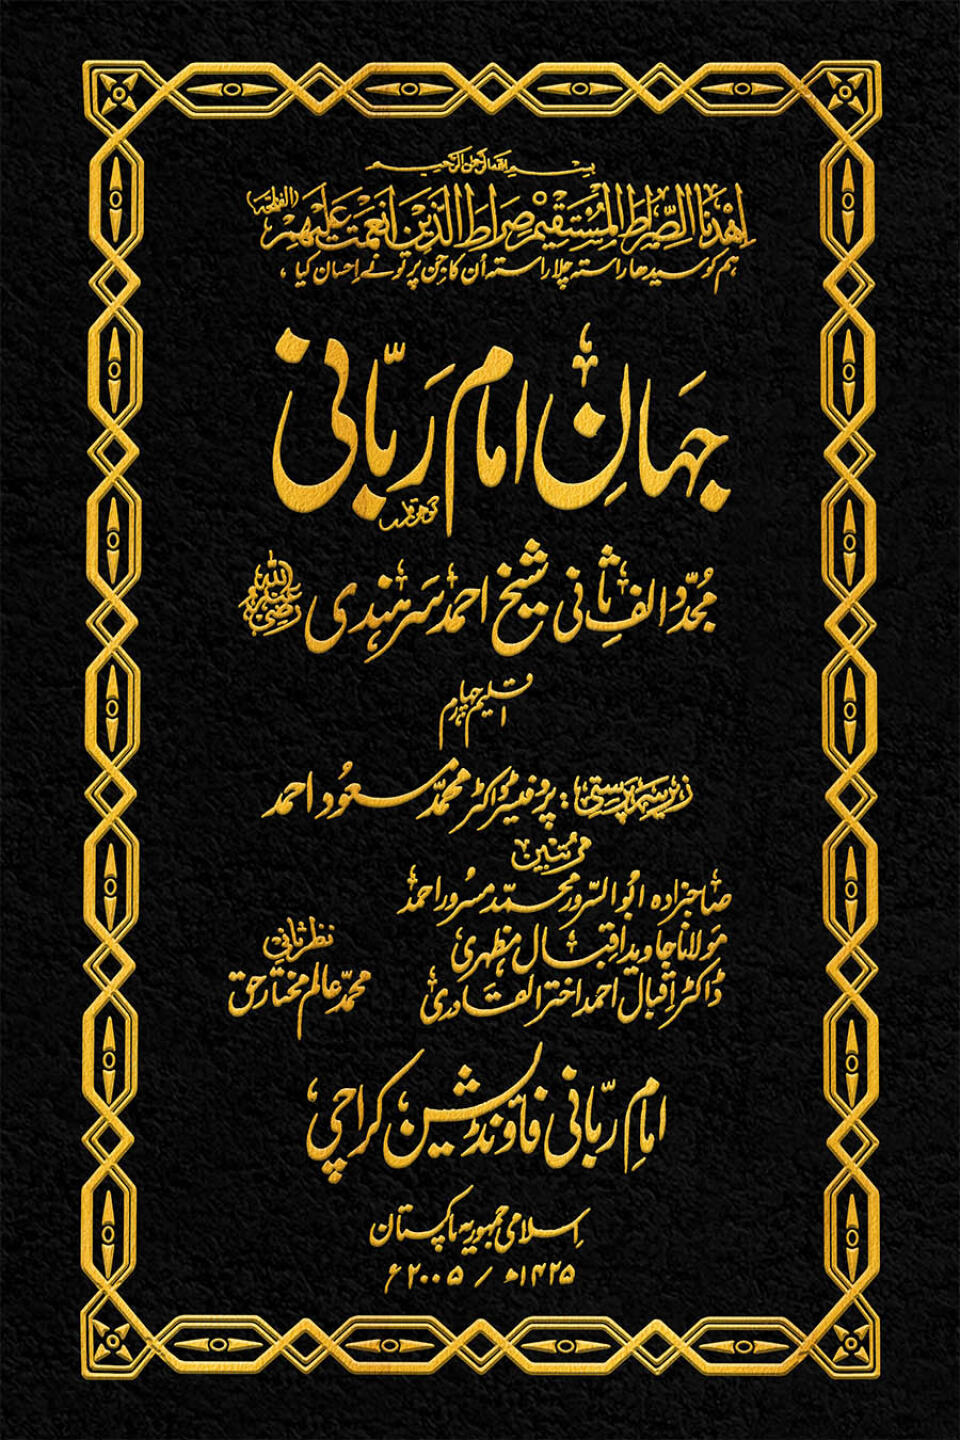 بسم اللہ الرحمن الرحیم
اِهْدِنَا الصِّرَاطَ الْمُسْتَقِيْمَ صِرَاطَ الَّذِيْنَ اَنْعَمْتَ عَلَيْهِمْ (الفاتحہ)
ہم کو سیدھا راستہ چلا راستہ اُن کا جن پر تو نے اِحسان کیا ،
جہانِ امام رَبّانی
مُجدّدِ الفِ ثانی شیخ احمد سَرہندی رضی اللہ عنہ
اقلیم چہارم
زیر سرپرستی : پروفیسر ڈاکٹر محمّد مسعُود احمد
مرتبین
صاحبزادہ ابُو السّرور محمّد مسرُور احمد
مَولانا جاوید اقبال مظہری
ڈاکٹر اِقبال احمد اختر القادری
نظر ثانی
محمّد عالم مختارِ حق
امامِ ربّانی فاؤنڈیشن کراچی
اِسلامی جمہوریہ پاکستان
۱۴۲۵ھ / ۲۰۰۵ء